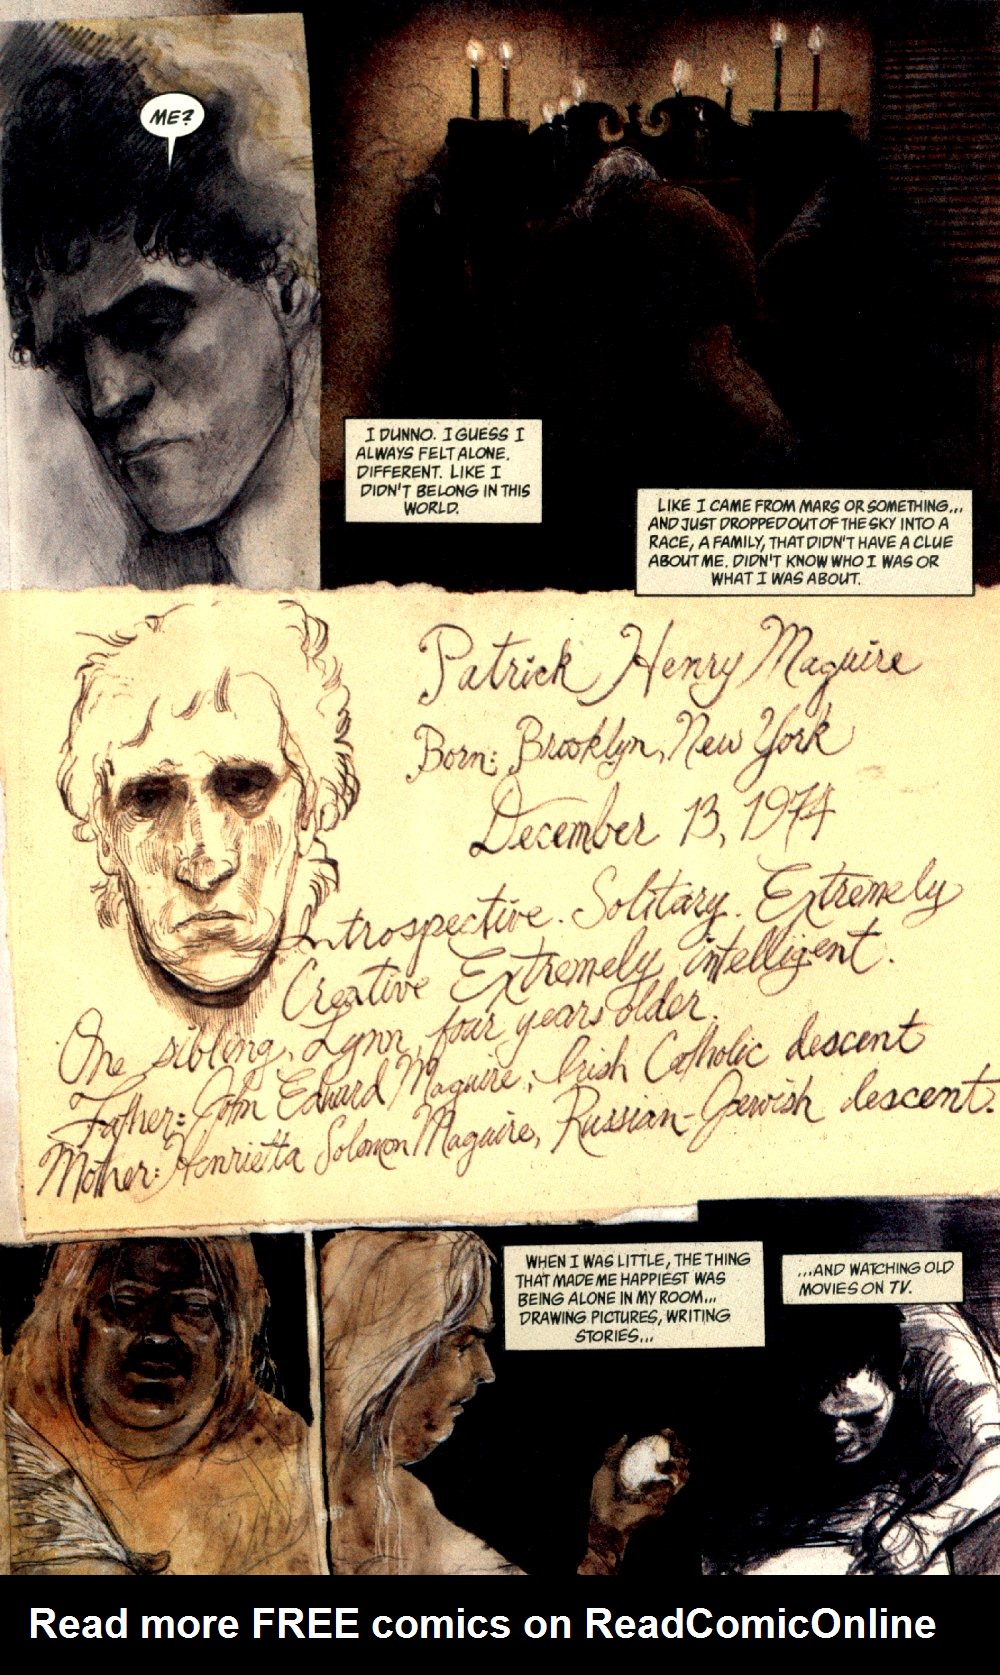 ME?
I DUNNO. I GUESS I
ALWAYS FELT ALONE.
DIFFERENT. LIKE I
DIDN'T BELONG IN THIS
WORLD.
LIKE I CAME FROM MARS OR SOMETHING...
AND JUST DROPPED OUT OF THE SKY INTO A
RACE, A FAMILY, THAT DIDN'T HAVE A CLUE
ABOUT ME. DIDN'T KNOW WHO I WAS OR
WHAT I WAS ABOUT.
Patrick Henry Maguire
Born: Brooklyn, New York
December 13, 1974
Introspective. Solitary. Extremely
Creative Extremely intelligent.
One sibling, Lynn, four years older.
Father: John Edward Maguire, Irish Catholic descent
Mother: Henrietta Solomon Maguire, Russian-Jewish descent.
WHEN I WAS LITTLE, THE THING
THAT MADE ME HAPPIEST WAS
BEING ALONE IN MY ROOM...
DRAWING PICTURES, WRITING
STORIES...
...AND WATCHING OLD
MOVIES ON TV.
Read more FREE comics on ReadComicOnline